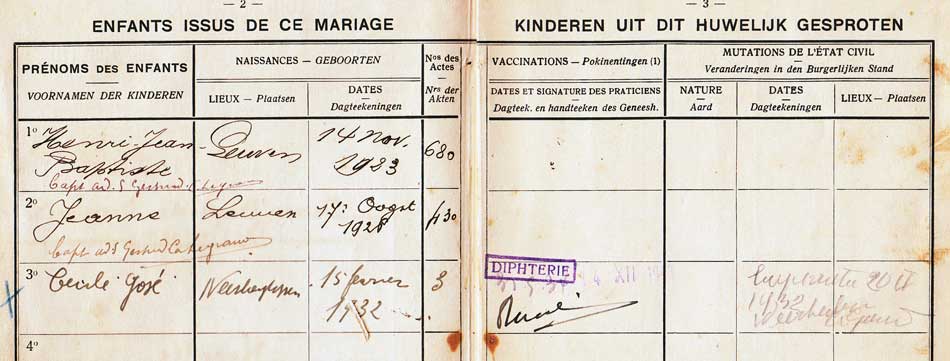 — 2 —
ENFANTS ISSUS DE CE MARIAGE
PRÉNOMS DES ENFANTS
—
VOORNAMEN DER KINDEREN
NAISSANCES — GEBOORTEN
LIEUX — Plaatsen
DATES
—
Dagteekeningen
Nos des
Actes
—
Nrs der
Akten
1o Henri-Jean
Baptiste
Leuven
14 Nov.
1923
680
Bapt. ad. S Gertrud.
2o Jeanne
Leuven
17: Oogst
430
Bapt ad S Gertrud
3o Cecile José
15 fevrier
1932
3
4o
— 3 —
KINDEREN UIT DIT HUWELIJK GESPROTEN
VACCINATIONS — Pokinentingen (1)
DATES ET SIGNATURE DES PRATICIENS
Dagteek. en handteeken des Geneesh.
MUTATIONS DE L'ÉTAT CIVIL
—
Veranderingen in den Burgerlijken Stand
NATURE
—
Aard
DATES
—
Dagteekeningen
LIEUX — Plaatsen
DIPHTERIE
XII
1932